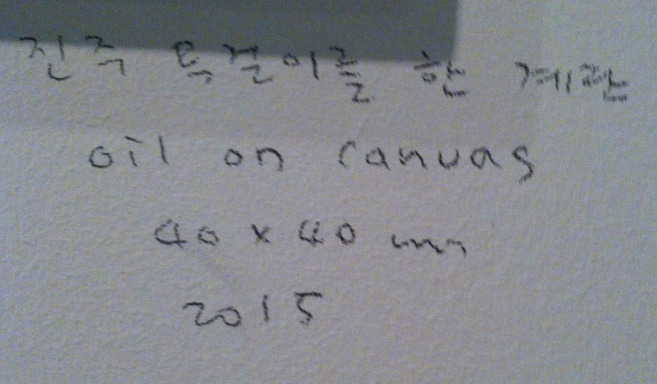 진주 목걸이를 한 계란
oil on canvas
40 x 40 cm
2015